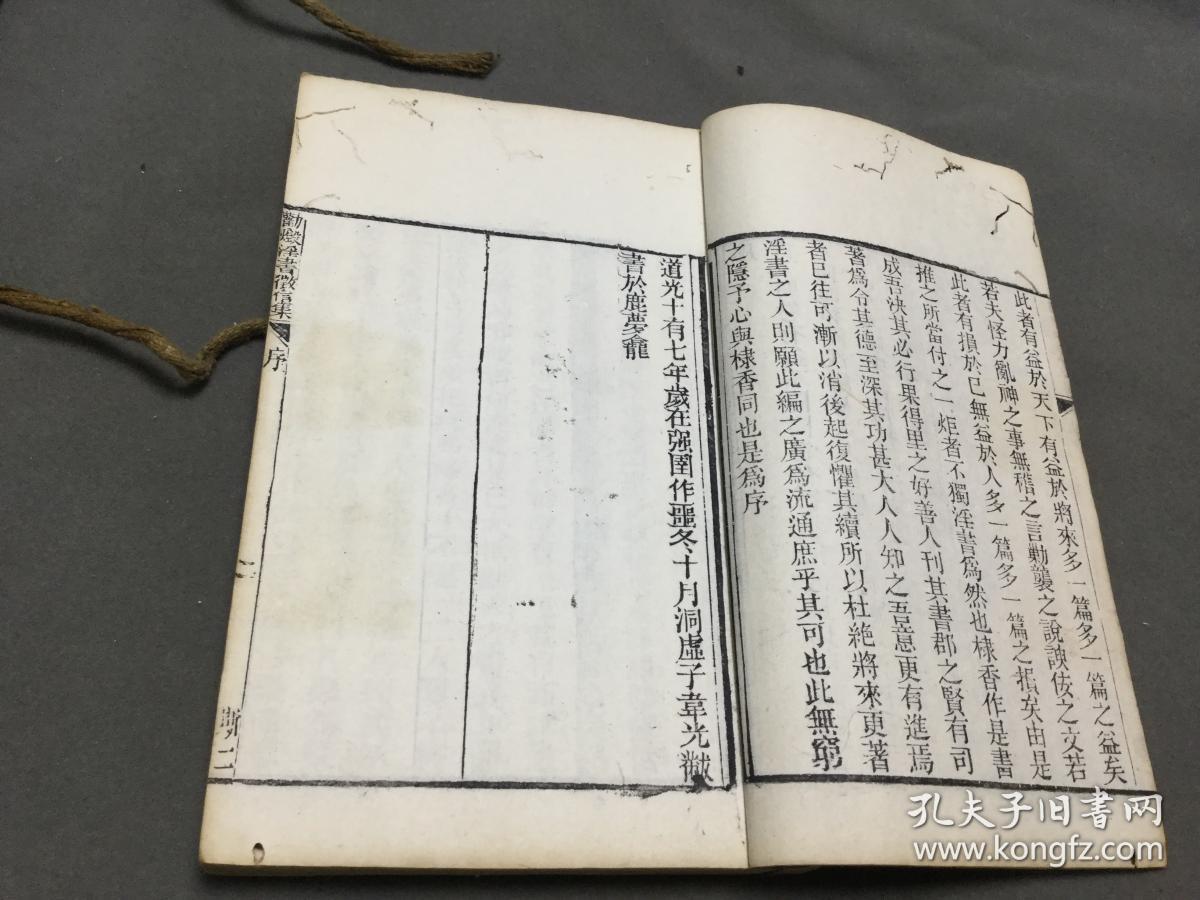 此者有益於天下有益於將來多一篇多一篇之益矣
若夫怪力亂神之事無稽之言勦襲之說諛佞之文若
此者有損於已無益於人多一篇多一篇之損矣由是
推之所當付之一炬者不獨淫書爲然也棣香作是書
成吾決其必行果得里之好善人刊其書郡之賢有司
著爲令其德至深其功甚大人人知之吾意更有進焉
者已往可漸以消後起復懼其續所以杜絶將來更著
淫書之人則願此編之廣爲流通庶乎其可也此無窮
之隱予心與棣香同也是爲序
道光十有七年歲在强圉作噩冬十月洞虛子韋光黻
書於鹿夢龕
勸燬淫書徵信集
序
二
孔夫子旧书网
www.kongfz.com